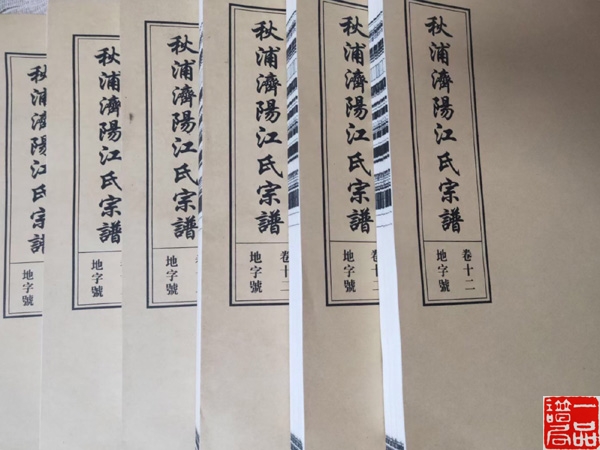 秋浦濟陽江氏宗譜
卷十二
地字號
秋浦濟陽江氏宗譜
卷十二
地字號
秋浦濟陽江氏宗譜
卷十二
地字號
秋浦濟陽江氏宗譜
地字號
秋浦濟陽江氏宗譜
地字號
秋浦濟陽江氏宗
地字號
一品
譜局